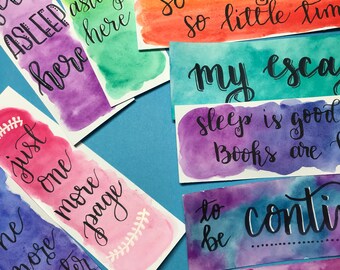 ASLEEP
here
asleep
here
so little time
my esca
sleep is good
Books are
to
be conti
just
one
more
page
one
more